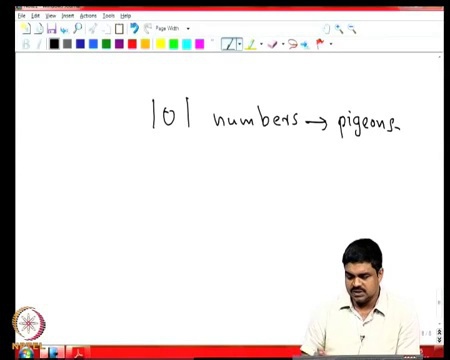 File Edit View Insert Actions Tools Help
Page Width
B I
101 numbers → pigeons.
NPTEL